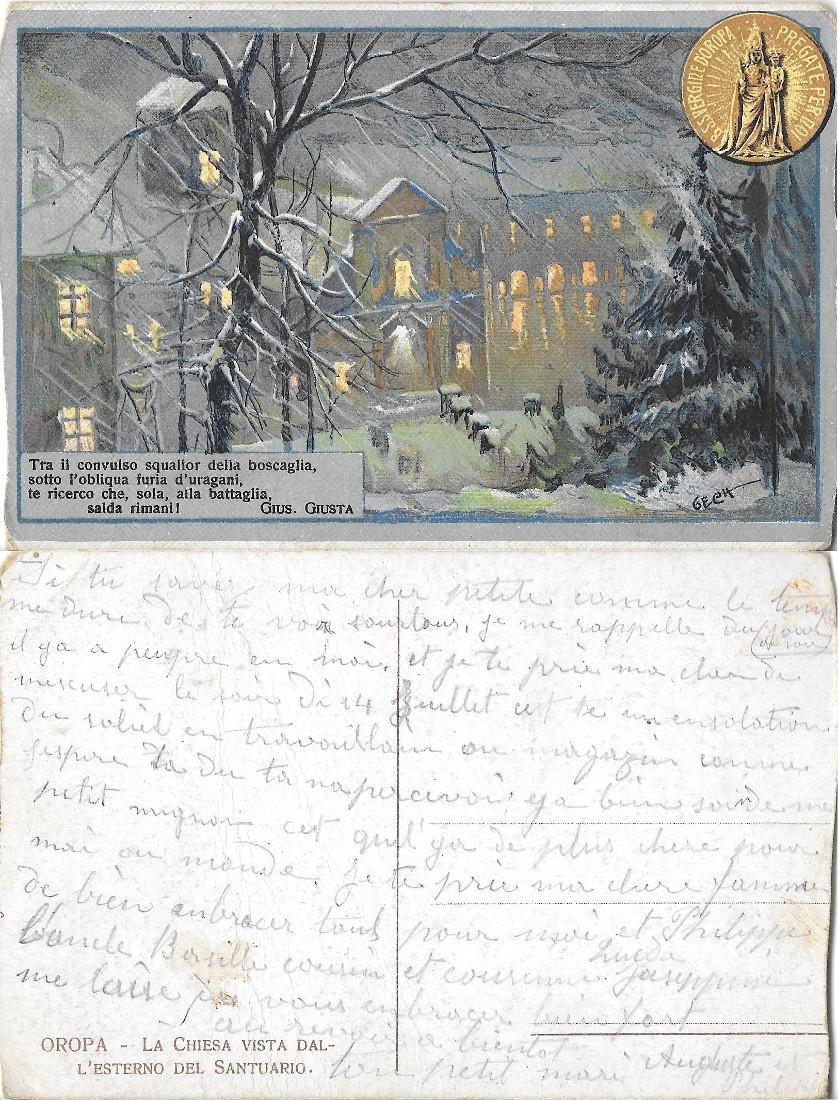 B.SS. VERGINE D'OROPA PREGATE PER NOI
Tra il convulso squallor della boscaglia,
sotto l'obliqua furia d'uragani,
te ricerco che, sola, alla battaglia,
salda rimani! GIUS. GIUSTA
GECH
Si tu saver ma cher petite comme le temp
me dure de te voir sourtous, je me rappelle du jour
ou soir
il ya a peupre en moi, et je te prie ma cher de
mescuser le soir di 14 Juillet cet te un ensolation
du soliel en travaillain au magazin comme
jespere ta Du ta napercivoir, ya bien soin de me
petit mignon cet quil'ya de plus chere pour
moi au monde, je te prie ma chere famme
de bien anbracer tous pour moi et Philippe
Lucda
l'oncle Basille cousin et cousinne Joseppine
me laise je vous enbracer bien fort
au revoir a bientot
ton petit mari Auguste et
OROPA - LA CHIESA VISTA DAL-
L'ESTERNO DEL SANTUARIO.